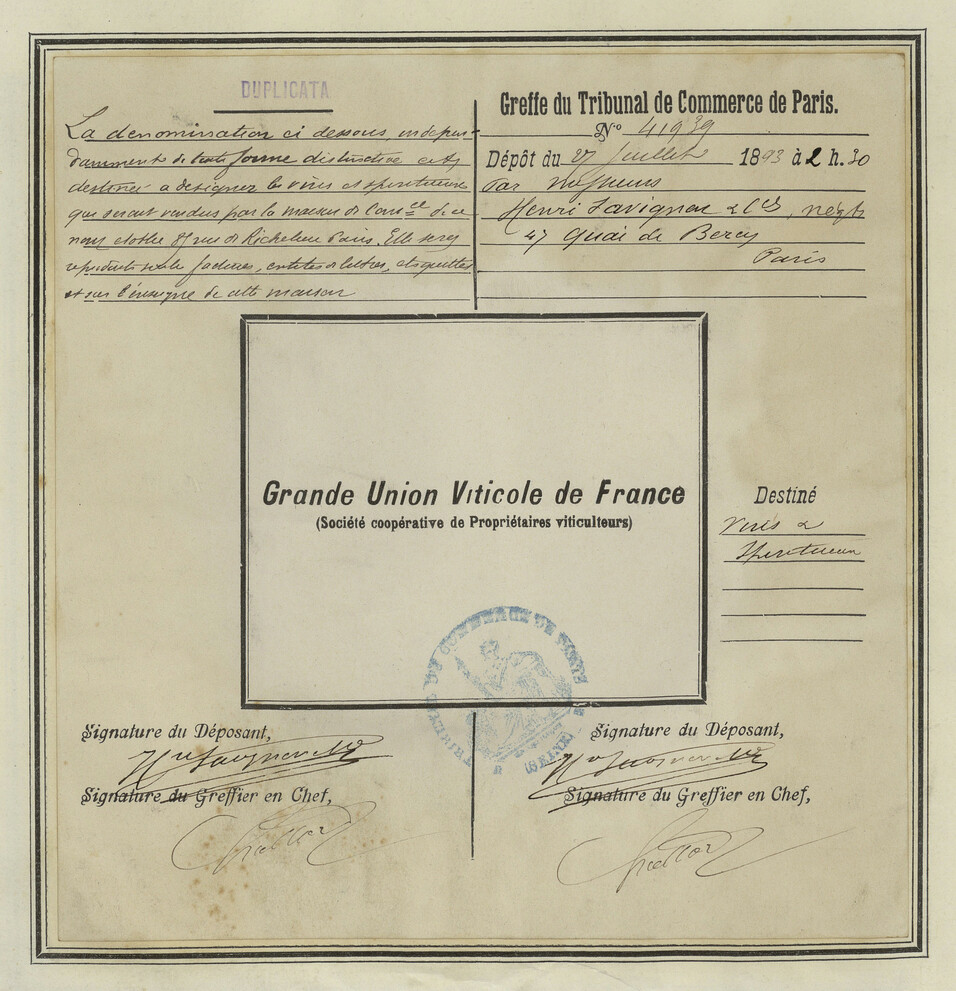 DUPLICATA
La dénomination ci dessous indépen-
damment de toute forme distinctive est
destinée a désigner les vins et spiritueux
qui seront vendus par la maison de Comce de ce
nom rue de Richelieu Paris. Elle sera
factures, entêtes de lettres, étiquettes
et sur l'enseigne de cette maison
Greffe du Tribunal de Commerce de Paris.
N° 41939
Dépôt du 27 Juillet 1893 à 2 h. 30
Par Messieurs
Henri Savignon & Cie, négts
47 Quai de Bercy
Paris
Grande Union Viticole de France
(Société coopérative de Propriétaires viticulteurs)
Destiné
Vins &
Spiritueux
TRIBUNAL DE COMMERCE DE
(SEINE)
Signature du Déposant,
Signature du Greffier en Chef,
Signature du Déposant,
Signature du Greffier en Chef,